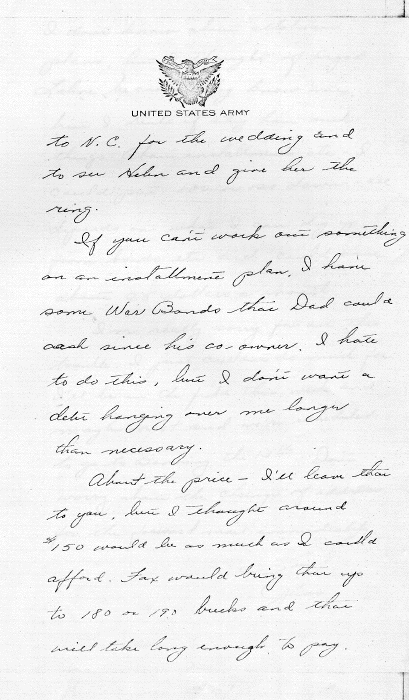 UNITED STATES ARMY
to N.C. for the wedding and
to see Helen and give her the
ring.
If you can't work out something
on an installment plan, I have
some War Bonds that Dad could
cash since his co-owner. I hate
to do this, but I don't want a
debt hanging over me longer
than necessary.
About the price - I'll leave that
to you, but I thought around
$150 would be as much as I could
afford. Tax would bring that up
to 180 or 190 bucks and that
will take long enough to pay.